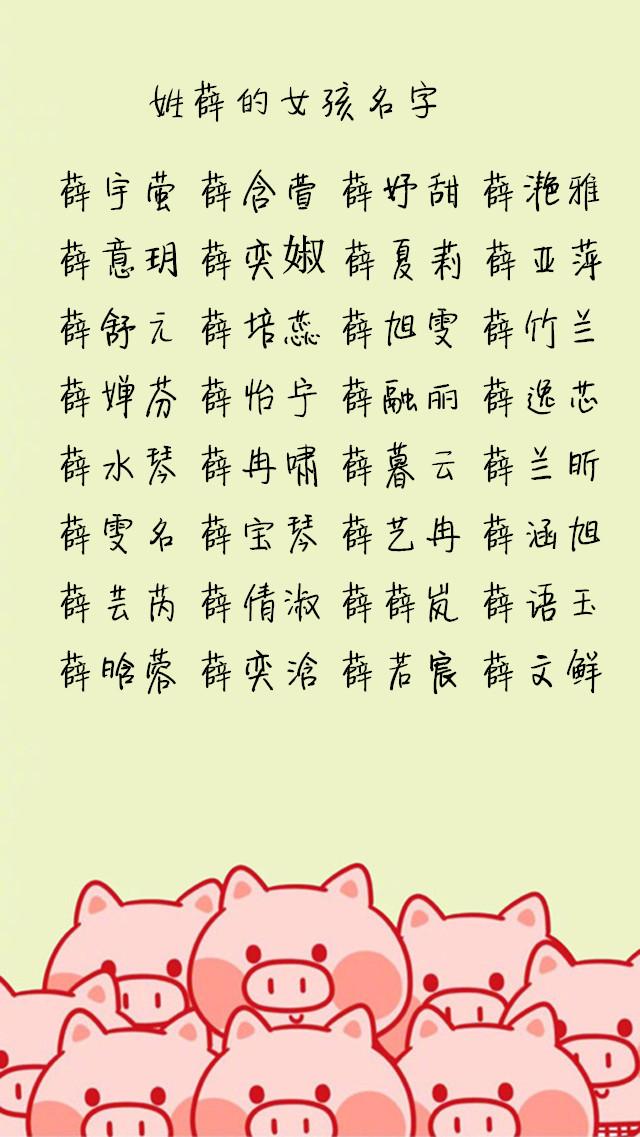 姓薛的女孩名字
薛宇萤 薛含萱 薛妤甜 薛滟雅
薛意玥 薛奕婌 薛夏莉 薛亚萍
薛舒元 薛培蕊 薛旭雯 薛竹兰
薛婵芬 薛怡宁 薛融丽 薛逸芯
薛水琴 薛冉啸 薛暮云 薛兰昕
薛雯名 薛宝琴 薛艺冉 薛涵旭
薛芸芮 薛倩淑 薛薛岚 薛语玉
薛晗蓉 薛奕浛 薛若宸 薛文鲜